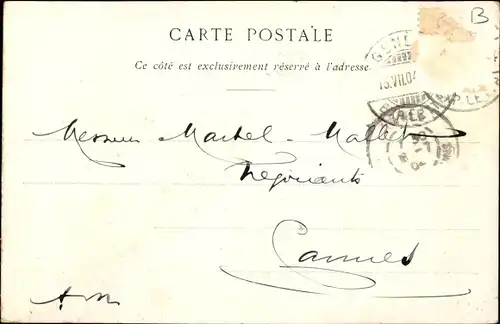 B
CARTE POSTALE
Ce côté est exclusivement réservé à l'adresse
GENÈ
13.VII.04
Messieurs Martel - Mallet
Négociants
Cannes
A.M.